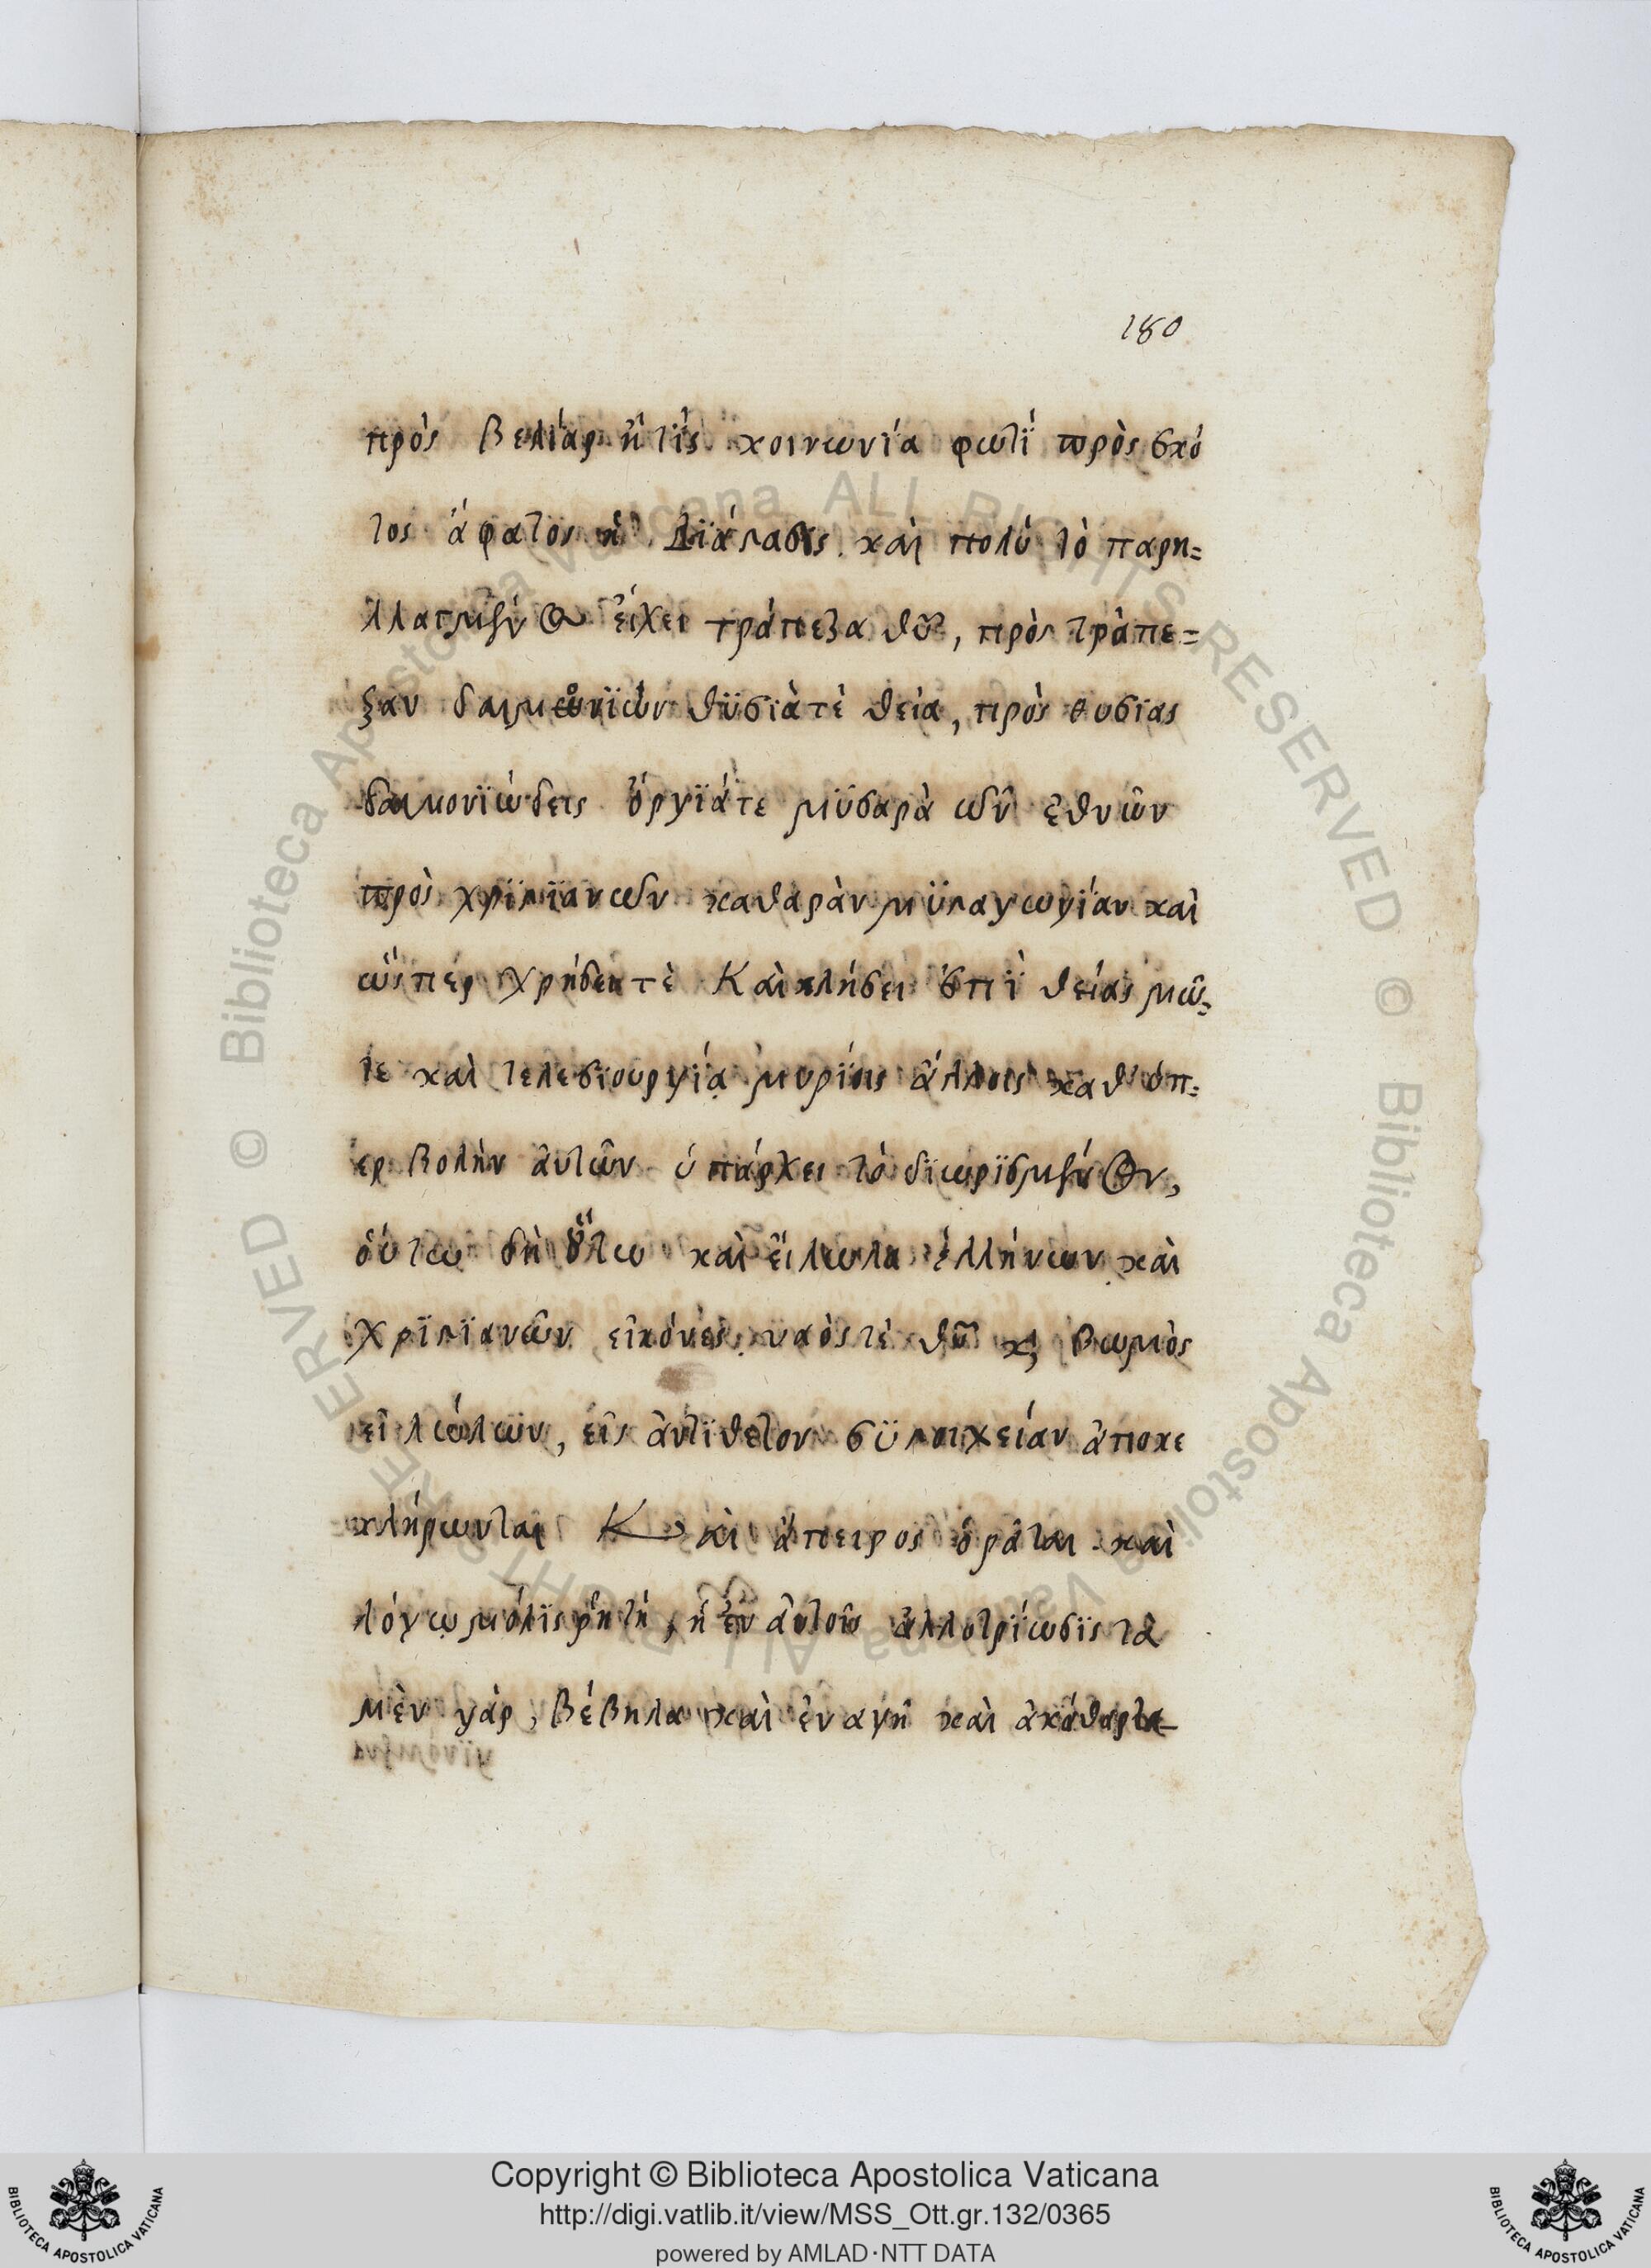 180
πρὸς βελίαρ ἢ τΐς κοινωνία φωτΐ πρὸς σκό
τος ἄφατος ἡ διάστασις καὶ πολύ τὸ παρη=
λλατμένον ἔιχει τράπεζα θεοῦ, πρὸς τράπε=
ζαν δαιμονϊὼν θϋσϊὰ τὲ θεία, πρὸς θυσΐας
δαιμονϊώδεις ὄργϊά τε μϋσαρὰ τῶν ἐθνῶν
πρὸς χρϊστϊανῶν καθαρὰν μϋσταγωγίαν καὶ
ὥσπερ χρήσει τὲ Καὶ κλήσει ἐπΐ θείας μῶ=
τε καὶ τελεσϊουργίᾳ μυρίοις ἄλλοις καθ' ὑπ=
ερβολὴν ἀυτῶν ὑπάρχει τὸ δϊωρϊσμένον,
ὅυτω δὴ ὅυτω καὶ ἔιδωλα ἑλλήνων καὶ
χρϊστϊανῶν εἰκόνες ναὸς τὲ θεοῦ κ βωμὸς
εἰδώλων, εἰς ἀντϊθετον συστοιχείαν ἀποκε
κλήρωνται Καὶ ἄπειρος ὁρᾶται καὶ
λόγῳ μόλϊς ῥητὴ, ἡ ἐν ἀυτοῖς ἀλλοτρίωσϊς τὰ
μὲν γὰρ, βέβηλα καὶ ἐναγῆ καὶ ἀκάθαρτα
Copyright © Biblioteca Apostolica Vaticana
http://digi.vatlib.it/view/MSS_Ott.gr.132/0365
powered by AMLAD·NTT DATA
BIBLIOTECA APOSTOLICA VATICANA
BIBLIOTECA APOSTOLICA VATICANA
© Biblioteca Apostolica Vaticana ALL RIGHTS RESERVED © Biblioteca Apostolica Vaticana ALL RIGHTS RESERVED